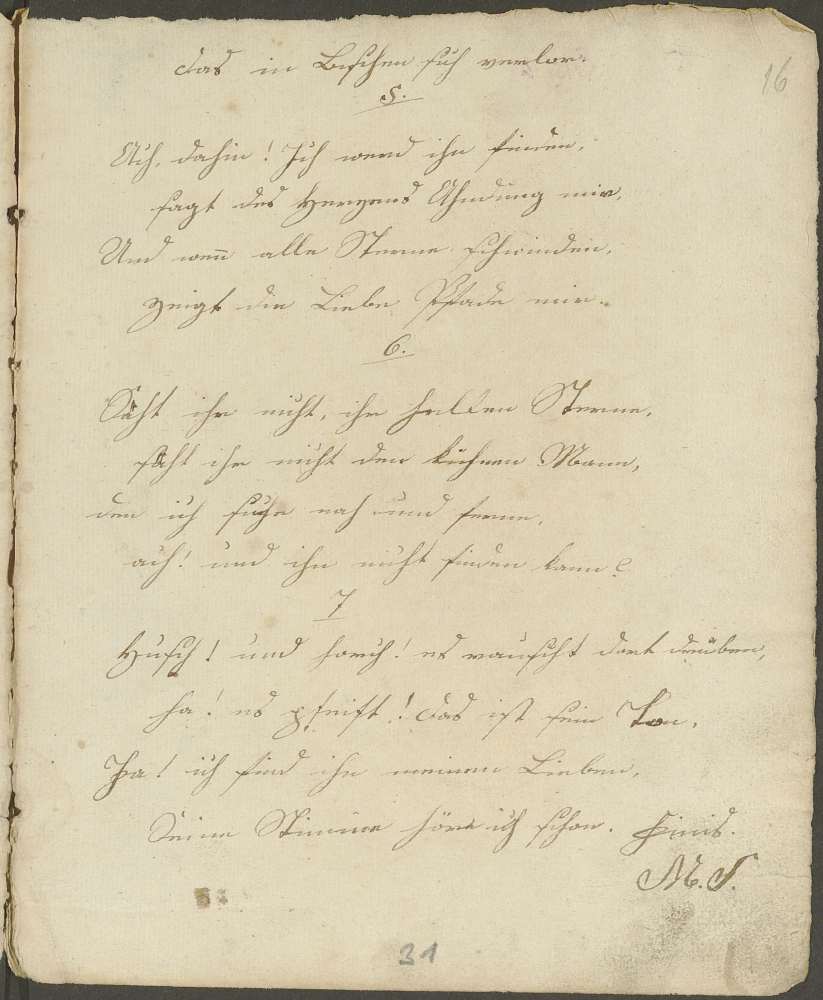 das in Büschen sich verlor.
16
5.
Ach, dahin! Ich werd ihn finden,
sagt des Herzens Ahndung mir,
Und wenn alle Sterne schwinden,
zeigt die Liebe Pfade mir.
6.
Säht ihr nicht, ihr hellen Sterne,
säht ihr nicht den kühnen Mann,
den ich suche nah und ferne,
ach! und ihn nicht finden kann?
7
Husch! und horch! es rauscht dort drüben,
ha! es pfeift! das ist sein Ton,
Ha! ich find ihn meinen Lieben,
Seine Stimme höre ich schon. Finis.
M. S.
31